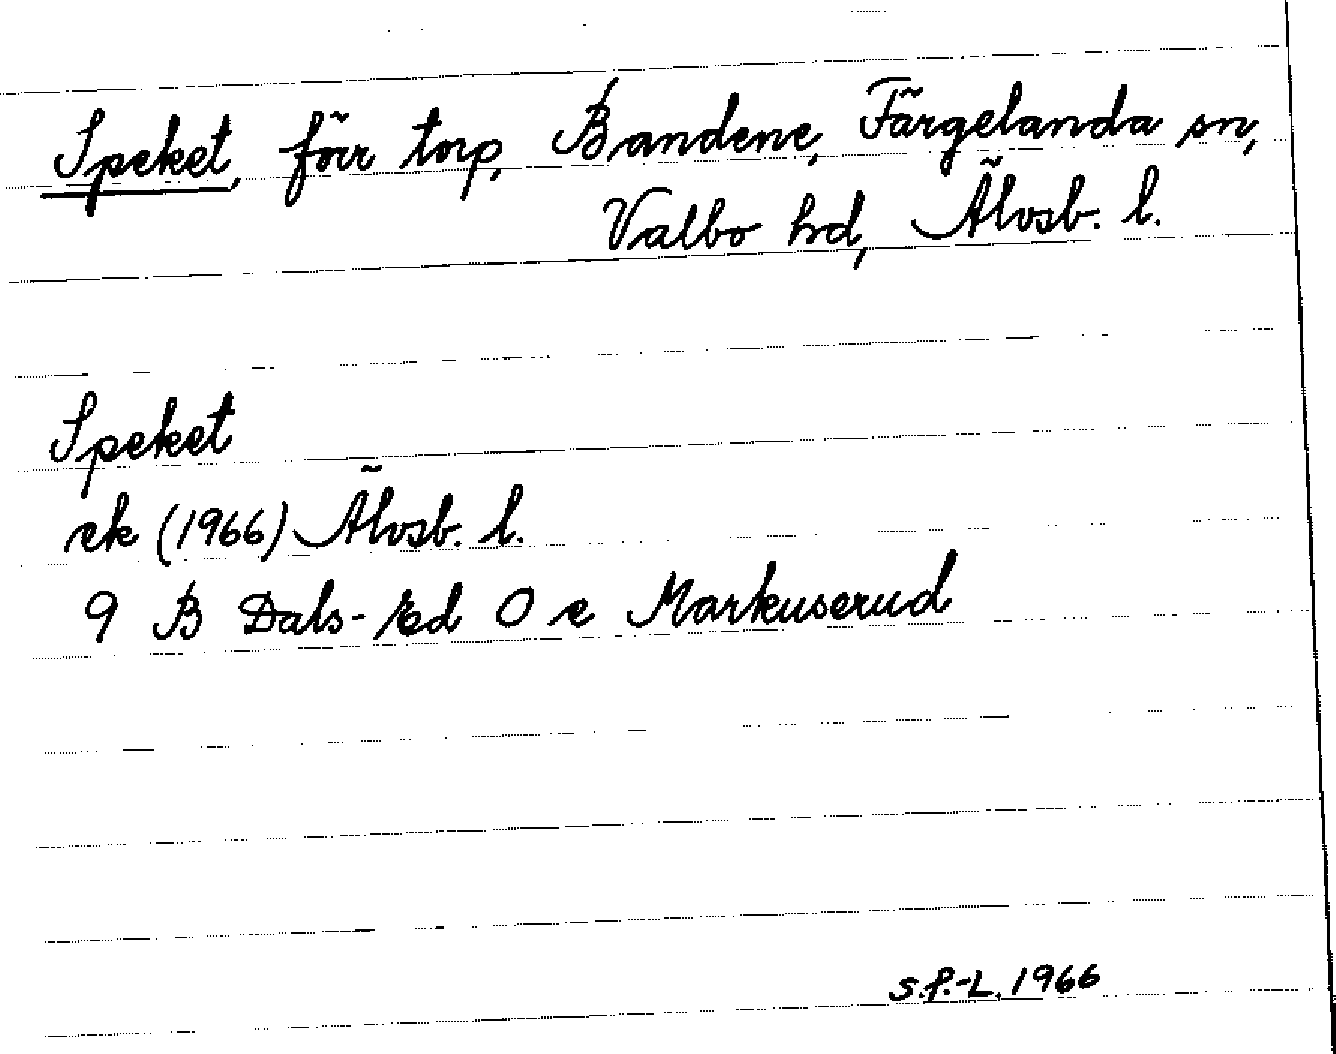 Speket, förr torp, Bandene, Färgelanda sn,
Valbo hd, Älvsb. l.
Speket
ek (1966) Älvsb. l.
9 B Dals-Ed O e Markuserud
S.F.-L. 1966